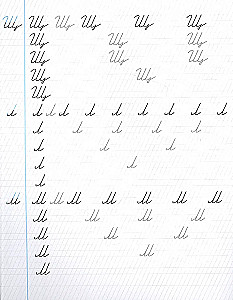 Щ Щ Щ Щ Щ Щ
Щ Щ Щ
Щ Щ Щ
Щ Щ
Щ
л л л л л л л л л л
л л л л л
л л л
л л
л
м м м м м м м м
м м м м
м м м
м м
м